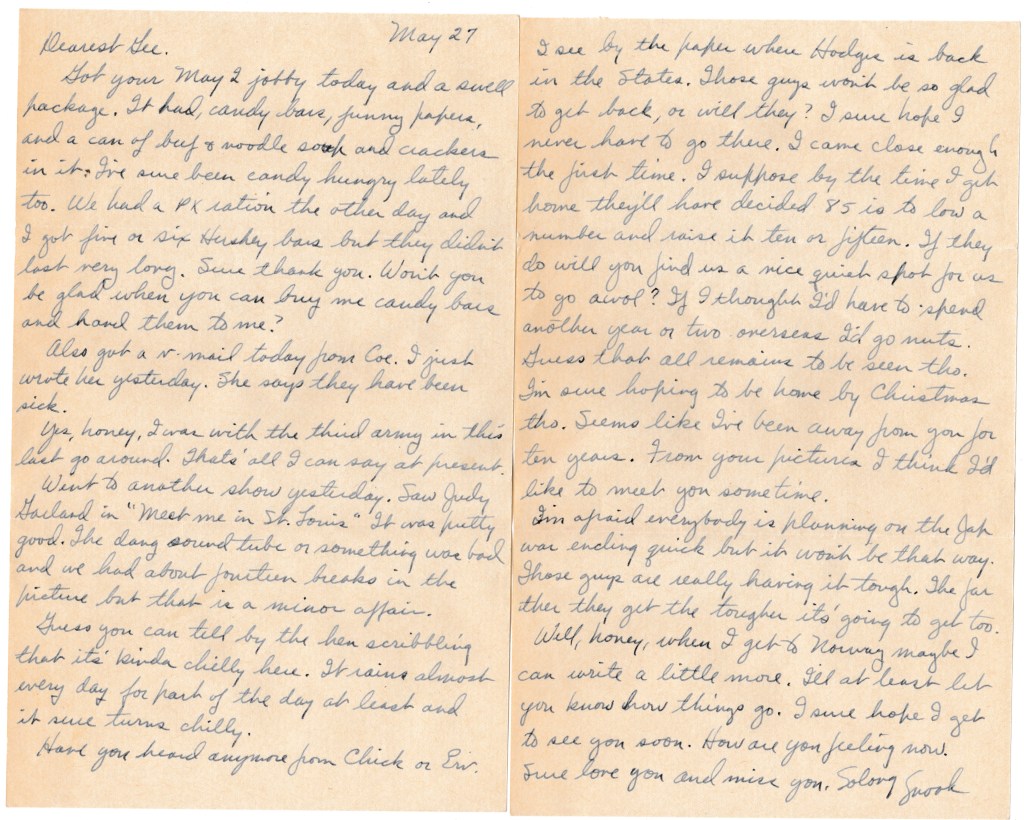 May 27
Dearest Lee.
Got your May 2 jobby today and a swell
package. It had, candy bars, funny papers,
and a can of beef & noodle soup and crackers
in it. I've sure been candy hungry lately
too. We had a PX ration the other day and
I got five or six Hershey bars but they didn't
last very long. Sure thank you. Won't you
be glad when you can buy me candy bars
and hand them to me?
Also got a v-mail today from Coe. I just
wrote her yesterday. She says they have been
sick.
Yes, honey, I was with the third army in this
last go around. Thats' all I can say at present.
Went to another show yesterday. Saw Judy
Garland in "Meet me in St. Louis" It was pretty
good. The dang sound tube or something was bad
and we had about fourteen breaks in the
picture but that is a minor affair.
Guess you can tell by the hen scribbling
that it's kinda chilly here. It rains almost
every day for part of the day at least and
it sure turns chilly.
Have you heard anymore from Chick or Erv.
I see by the paper where Hodges is back
in the States. Those guys won't be so glad
to get back, or will they? I sure hope I
never have to go there. I came close enough
the first time. I suppose by the time I get
home they'll have decided 85 is to low a
number and raise it ten or fifteen. If they
do will you find us a nice quiet spot for us
to go awol? If I thought I'd have to spend
another year or two overseas I'd go nuts.
Guess that all remains to be seen tho.
I'm sure hoping to be home by Christmas
tho. Seems like I've been away from you for
ten years. From your pictures I think I'd
like to meet you sometime.
I'm afraid everybody is planning on the Jap
war ending quick but it won't be that way.
Those guys are really having it tough. The far
ther they get the tougher it's going to get too.
Well, honey, when I get to Norway maybe I
can write a little more. I'll at least let
you know how things go. I sure hope I get
to see you soon. How are you feeling now.
Sure love you and miss you. Solong Snook